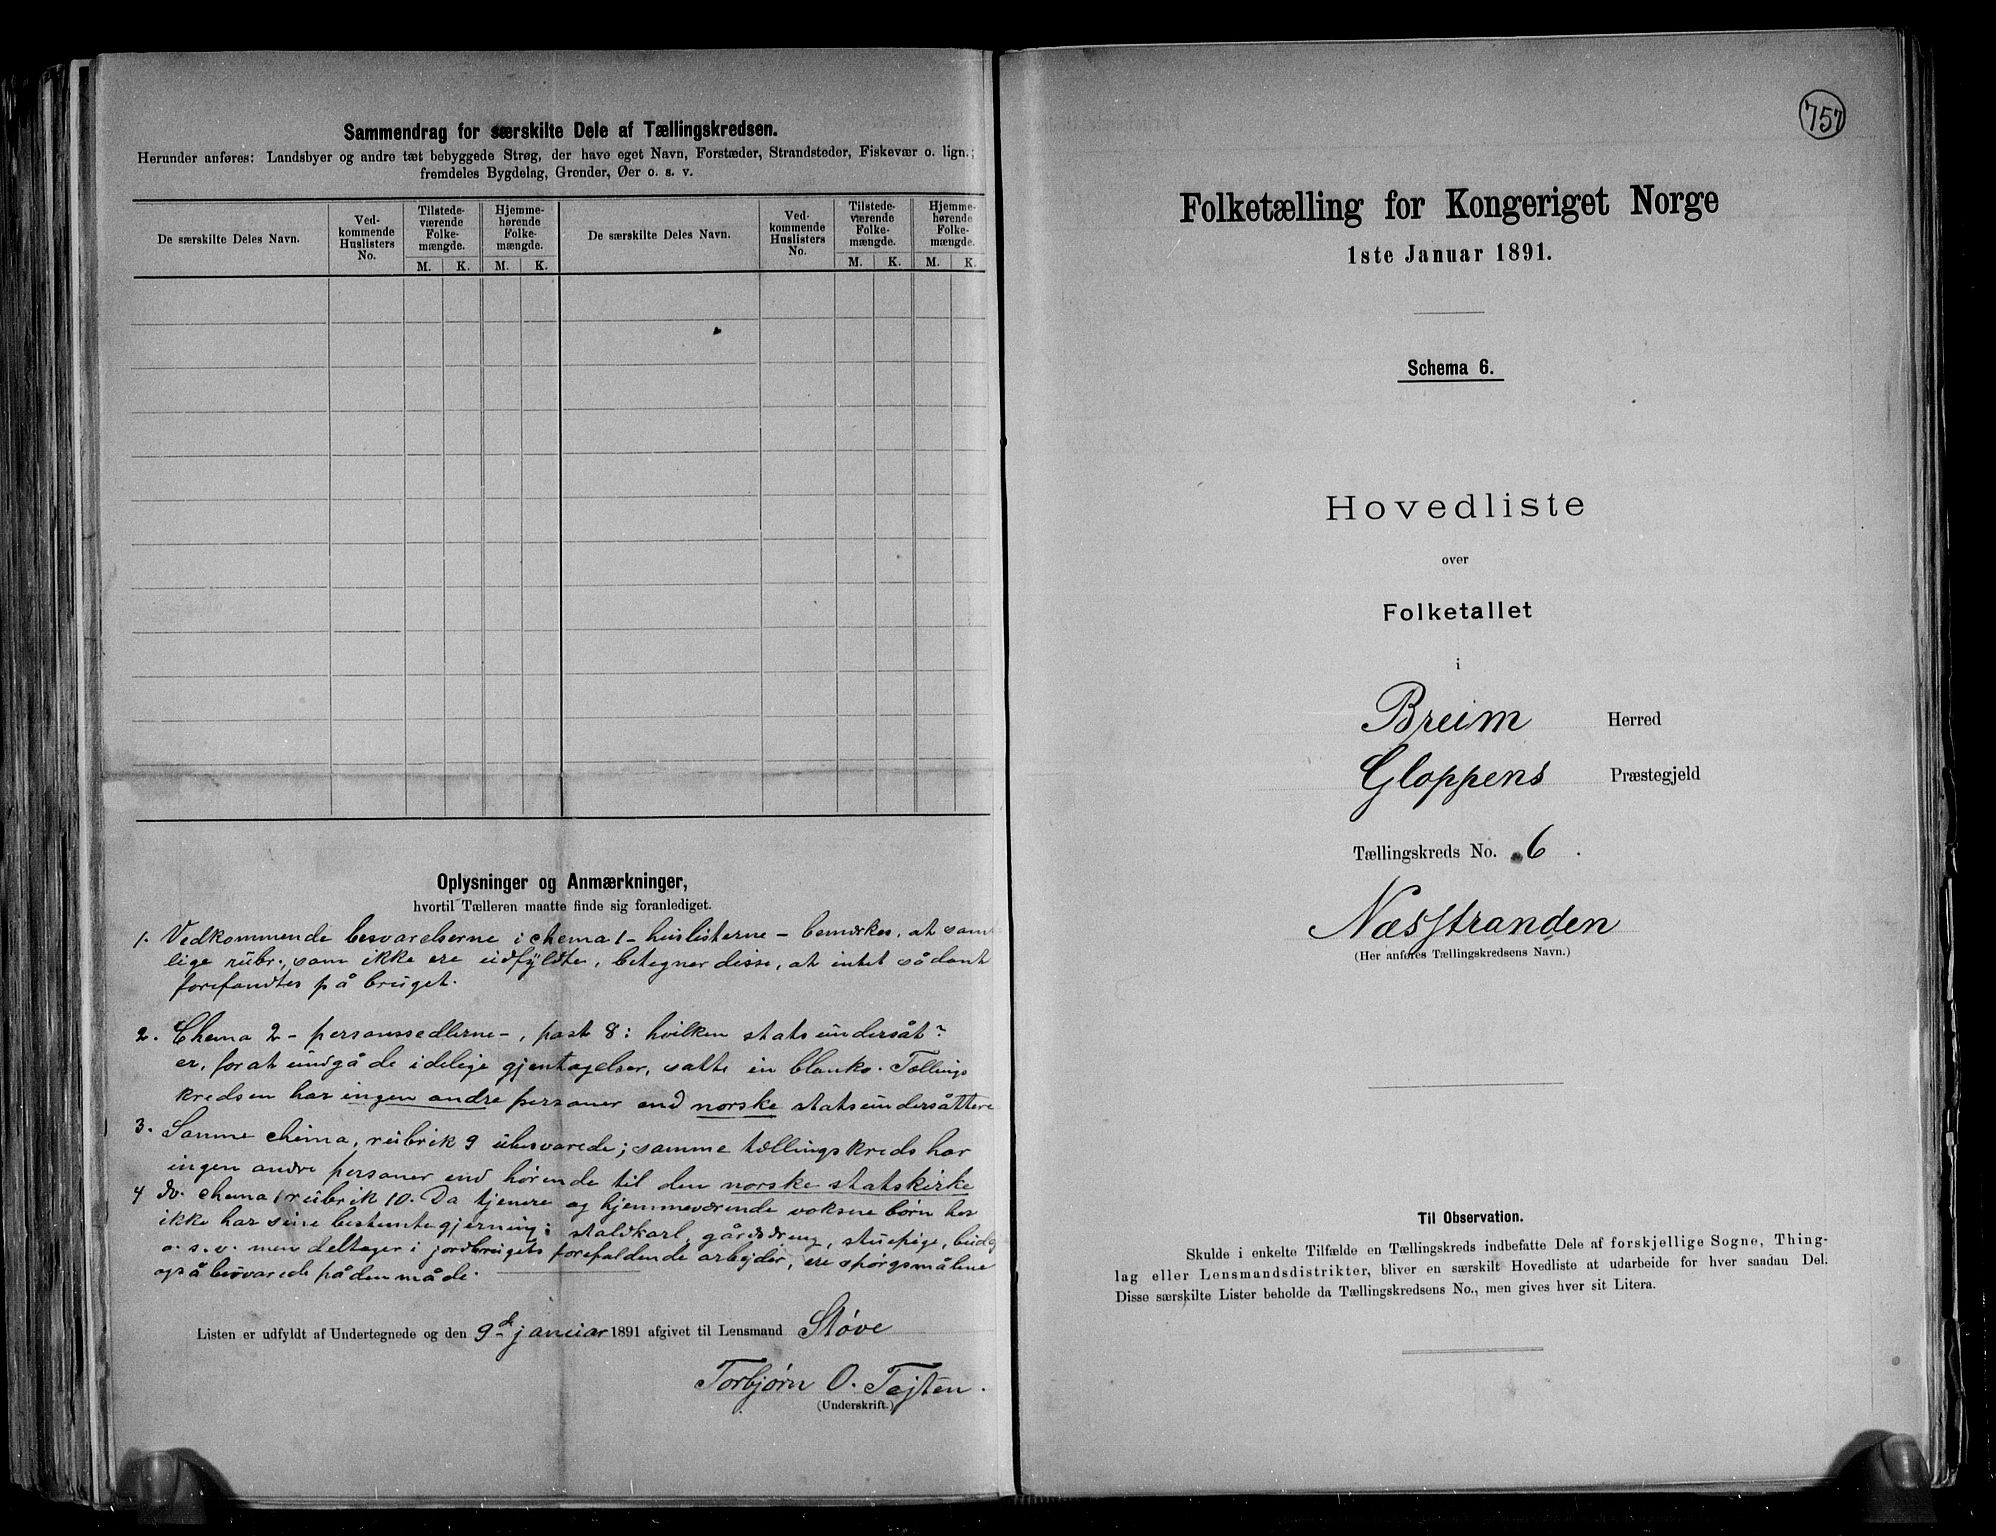 Sammendrag for særskilte Dele af Tællingskredsen.
Herunder anføres: Landsbyer og andre tæt bebyggede Strøg, der have eget Navn, Forstæder, Strandsteder, Fiskevær o. lign.;
fremdeles Bygdelag, Grender, Øer o. s. v.
De særskilte Deles Navn.
Ved-
kommende
Huslisters
No.
Tilstede-
værende
Folke-
mængde.
Hjemme-
hørende
Folke-
mængde.
M. K. M. K.
De særskilte Deles Navn.
Ved-
kommende
Huslisters
No.
Tilstede-
værende
Folke-
mængde.
Hjemme-
hørende
Folke-
mængde.
M. K. M. K.
Oplysninger og Anmærkninger,
hvortil Tælleren maatte finde sig foranlediget.
1. Vedkommende besvarelserne i chema 1 - huslisterne - bemærkes, at samt
lige rubr., som ikke ere udfyldte, betegner disse, at intet sådant
forefandtes på bruget.
2. Chema 2 - personssedlerne -, post 8: hvilken statsundersåt?
er, for at undgå de idelige gjentagelser, satte in blanko. Tællings
kredsen har ingen andre personer end norske statsundersåttere
3. Samme chema, rubrik 9 ubesvarede; samme tællingskreds har
ingen andre personer end hørende til den norske statskirke
4 do. chema, rubrik 10. Da tjenere og hjemmeværende voksne børn her
ikke har sine bestemte gjerning: staldkarl, gårdsdreng, stuepige, budej
o. s. v. men deltager i jordbrugets forefaldende arbejder, ere spørgsmålene
også besvarede på den måde.
Listen er udfyldt af Undertegnede og den 9de januar 1891 afgivet til Lensmand Støve
Torbjørn O. Fejten.
(Underskrift.)
757
Folketælling for Kongeriget Norge
1ste Januar 1891.
Schema 6.
Hovedliste
over
Folketallet
i
Breim Herred
Gloppens Præstegjeld
Tællingskreds No. 6.
Næsstranden
(Her anføres Tællingskredsens Navn.)
Til Observation.
Skulde i enkelte Tilfælde en Tællingskreds indbefatte Dele af forskjellige Sogne, Thing-
lag eller Lensmandsdistrikter, bliver en særskilt Hovedliste at udarbeide for hver saadan Del.
Disse særskilte Lister beholde da Tællingskredsens No., men gives hver sit Litera.